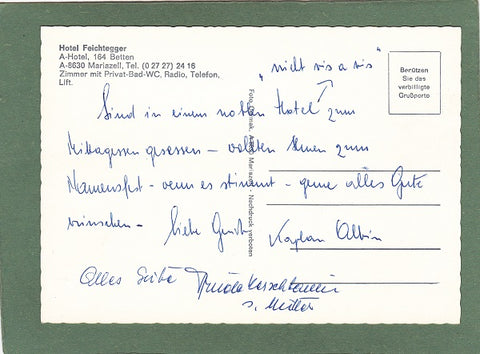 Hotel Feichtegger
A-Hotel, 164 Betten
A-8630 Mariazell, Tel. (0 27 27) 24 16
Zimmer mit Privat-Bad-WC, Radio, Telefon,
Lift.
Benützen
Sie das
verbilligte
Grußporto
„nicht vis a vis"
Sind in einem noblen Hotel zum
Mittagessen gesessen - wollten Ihnen zum
Namensfest - wenn es stimmt - gerne alles Gute
wünschen - Liebe Kaplan Albin
Alles
s. Mutter
Nachdruck verboten